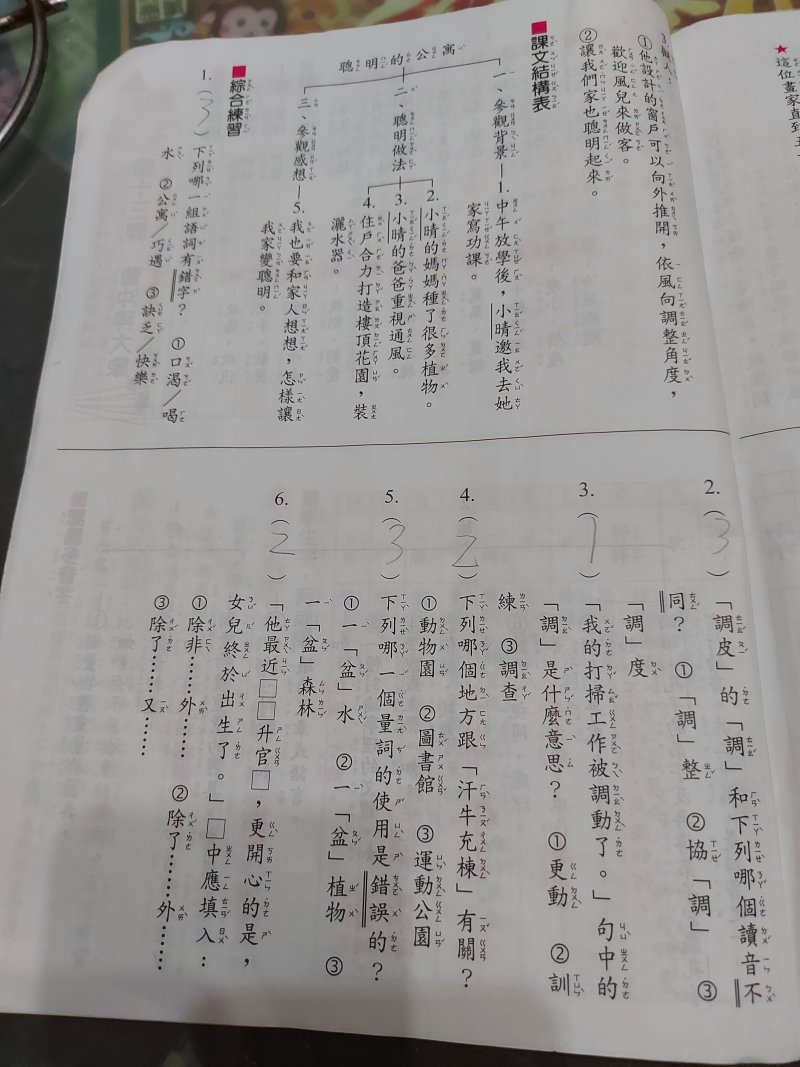 ★這位畫家直到五
①他設計的窗戶可以向外推開，依風向調整角度，
歡迎風兒來做客。
②讓我們家也聰明起來。
課文結構表
聰明的公寓
一、參觀背景
1.中午放學後，小晴邀我去她
家寫功課。
二、聰明做法
2.小晴的媽媽種了很多植物。
3.小晴的爸爸重視通風。
4.住戶合力打造樓頂花園，裝
灑水器。
三、參觀感想
5.我也要和家人想想，怎樣讓
我家變聰明。
綜合練習
1.（3）下列哪一組語詞有錯字？ ①口渴／喝
水 ②公寓／巧遇 ③訣乏／快樂
2.（3）「調皮」的「調」和下列哪個讀音不
同？ ①「調」整 ②協「調」 ③
「調」度
3.（1）「我的打掃工作被調動了。」句中的
「調」是什麼意思？ ①更動 ②訓
練 ③調查
4.（2）下列哪個地方跟「汗牛充棟」有關？
①動物園 ②圖書館 ③運動公園
5.（3）下列哪一個量詞的使用是錯誤的？
①一「盆」水 ②一「盆」植物 ③
一「盆」森林
6.（2）「他最近□□升官□，更開心的是，
女兒終於出生了。」□中應填入：
①除非……外…… ②除了……外……
③除了……又……